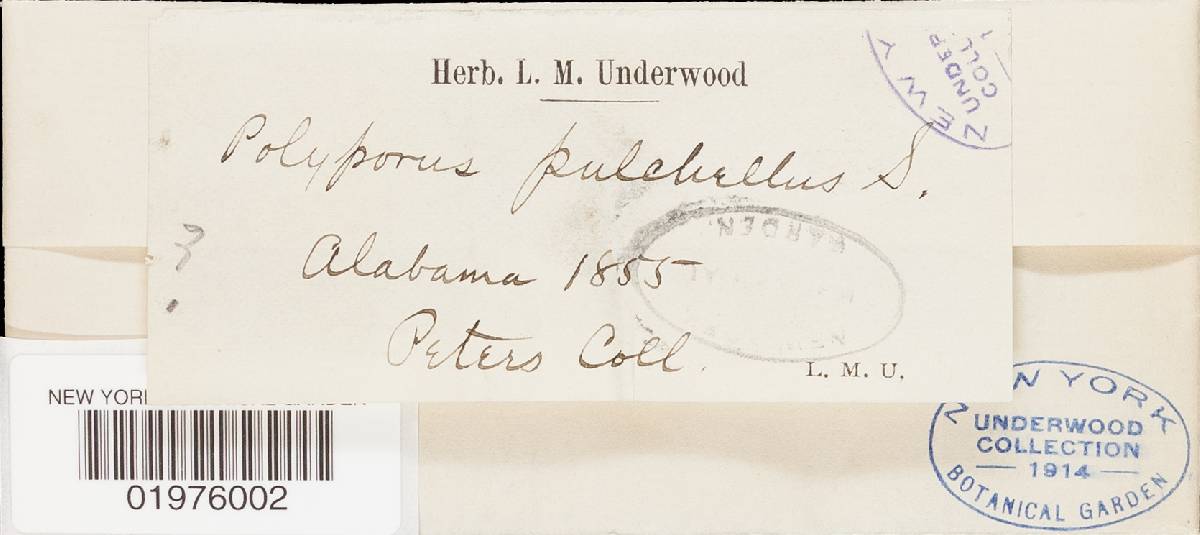 Herb. L. M. Underwood
Polyporus pulchellus S.
Alabama 1855
Peters Coll.
L. M. U.
?
NEW Y
UNDER
COLL
1
GARDEN.
NEW YORK
UNDERWOOD
COLLECTION
1914
BOTANICAL GARDEN
NEW YORK GARDEN
01976002